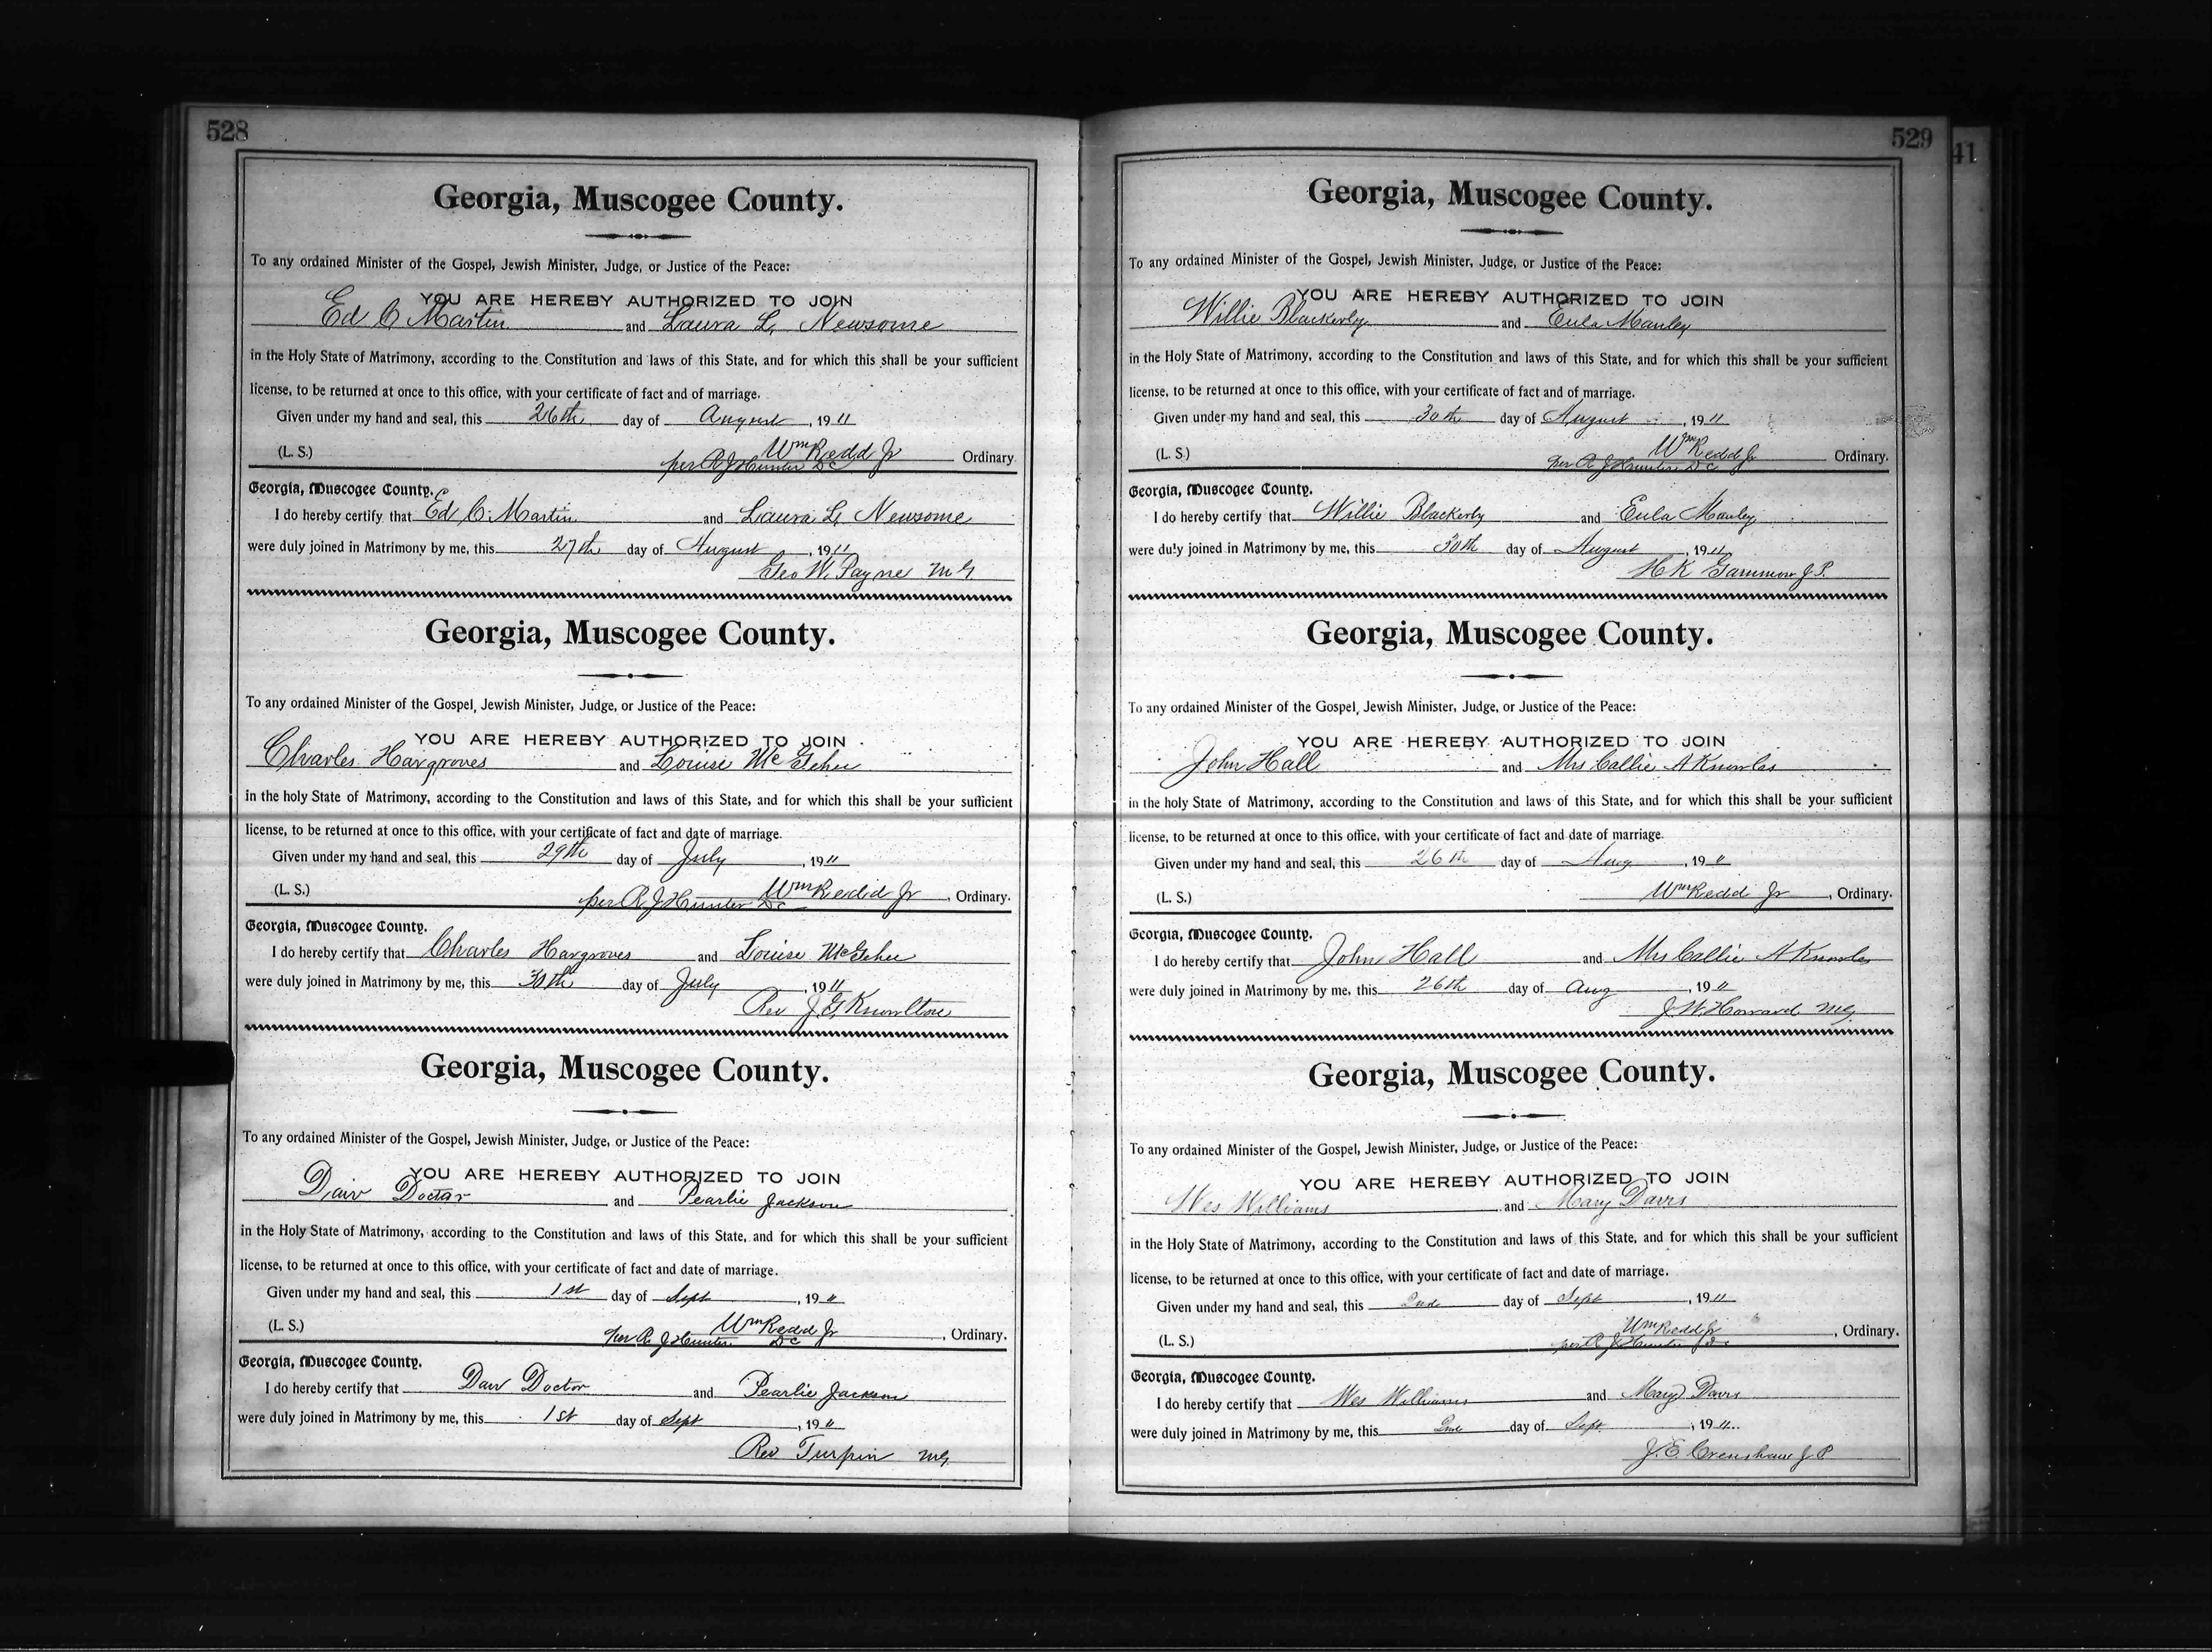 528
Georgia, Muscogee County.
To any ordained Minister of the Gospel, Jewish Minister, Judge, or Justice of the Peace:
YOU ARE HEREBY AUTHORIZED TO JOIN
Ed C Martin and Laura L. Newsome
in the Holy State of Matrimony, according to the Constitution and laws of this State, and for which this shall be your sufficient
license, to be returned at once to this office, with your certificate of fact and of marriage.
Given under my hand and seal, this 26th day of August, 1911
(L. S.) Wm Redd Jr Ordinary.
per R J Hunter D C
Georgia, Muscogee County.
I do hereby certify that Ed C. Martin and Laura L. Newsome
were duly joined in Matrimony by me, this 27th day of August, 1911
Geo W. Payne M G
Georgia, Muscogee County.
To any ordained Minister of the Gospel, Jewish Minister, Judge, or Justice of the Peace:
YOU ARE HEREBY AUTHORIZED TO JOIN
Charles Hargroves and Louise McGehee
in the holy State of Matrimony, according to the Constitution and laws of this State, and for which this shall be your sufficient
license, to be returned at once to this office, with your certificate of fact and date of marriage.
Given under my hand and seal, this 29th day of July, 1911
(L. S.) Wm Redd Jr, Ordinary.
per R J Hunter D C
Georgia, Muscogee County.
I do hereby certify that Charles Hargroves and Louise McGehee
were duly joined in Matrimony by me, this 30th day of July, 1911
Rev J. G. Knowlton
Georgia, Muscogee County.
To any ordained Minister of the Gospel, Jewish Minister, Judge, or Justice of the Peace:
YOU ARE HEREBY AUTHORIZED TO JOIN
Doctor and Pearlie Jackson
in the Holy State of Matrimony, according to the Constitution and laws of this State, and for which this shall be your sufficient
license, to be returned at once to this office, with your certificate of fact and date of marriage.
Given under my hand and seal, this 1st day of Sept, 1911
(L. S.) Wm Redd Jr, Ordinary.
per R J Hunter D C
Georgia, Muscogee County.
I do hereby certify that Doctor and Pearlie Jackson
were duly joined in Matrimony by me, this 1st day of Sept, 1911
Rev Turpin M G
529
41
Georgia, Muscogee County.
To any ordained Minister of the Gospel, Jewish Minister, Judge, or Justice of the Peace:
YOU ARE HEREBY AUTHORIZED TO JOIN
Willie Blackerby and Eula Manley
in the Holy State of Matrimony, according to the Constitution and laws of this State, and for which this shall be your sufficient
license, to be returned at once to this office, with your certificate of fact and of marriage.
Given under my hand and seal, this 30th day of August, 1911
(L. S.) Wm Redd Jr Ordinary.
per R J Hunter D C
Georgia, Muscogee County.
I do hereby certify that Willie Blackerby and Eula Manley
were duly joined in Matrimony by me, this 30th day of August, 1911
H K Gammon J. P.
Georgia, Muscogee County.
To any ordained Minister of the Gospel, Jewish Minister, Judge, or Justice of the Peace:
YOU ARE HEREBY AUTHORIZED TO JOIN
John Hall and Mrs Callie A Knowles
in the holy State of Matrimony, according to the Constitution and laws of this State, and for which this shall be your sufficient
license, to be returned at once to this office, with your certificate of fact and date of marriage.
Given under my hand and seal, this 26th day of Aug, 1911
(L. S.) Wm Redd Jr, Ordinary.
Georgia, Muscogee County.
I do hereby certify that John Hall and Mrs Callie A Knowles
were duly joined in Matrimony by me, this 26th day of Aug, 1911
J. W. Howard M G.
Georgia, Muscogee County.
To any ordained Minister of the Gospel, Jewish Minister, Judge, or Justice of the Peace:
YOU ARE HEREBY AUTHORIZED TO JOIN
Wes Williams and Mary Davis
in the Holy State of Matrimony, according to the Constitution and laws of this State, and for which this shall be your sufficient
license, to be returned at once to this office, with your certificate of fact and date of marriage.
Given under my hand and seal, this 2nd day of Sept, 1911
(L. S.) Wm Redd Jr, Ordinary.
per R J Hunter D C
Georgia, Muscogee County.
I do hereby certify that Wes Williams and Mary Davis
were duly joined in Matrimony by me, this 2nd day of Sept., 1911
J. E. Crenshaw J P